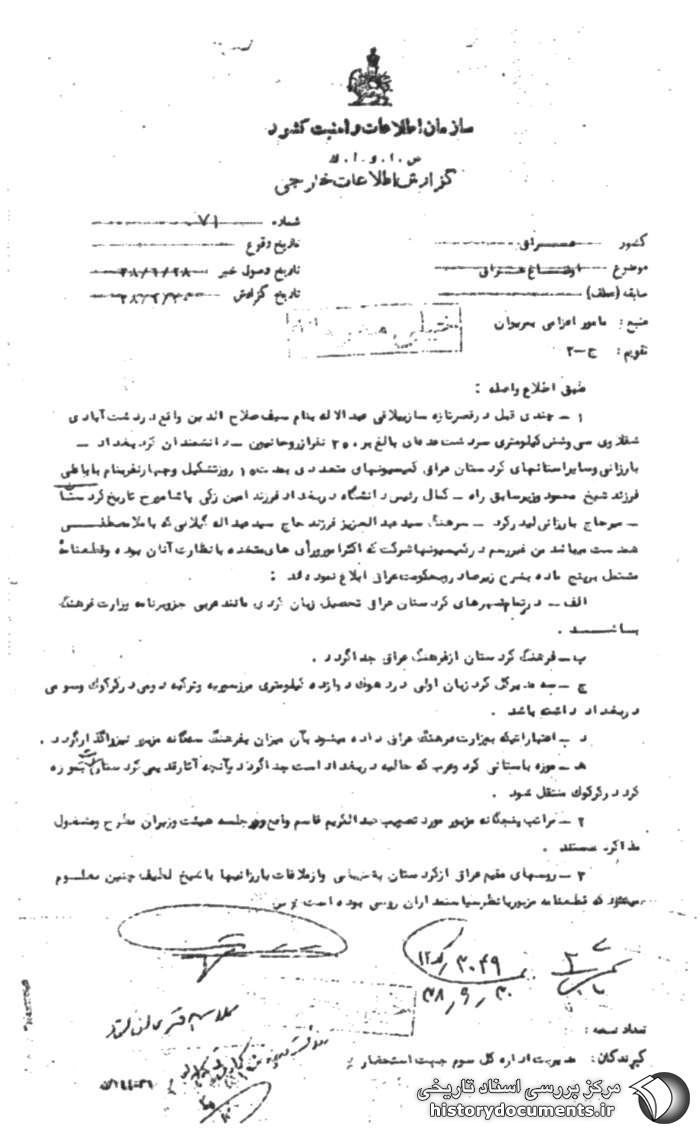 سازمان اطلاعات و امنیت کشور
س . ا . و . ا . ك
گزارش اطلاعات خارجی
شماره ۷۱
کشور عراق
تاریخ وقوع
موضوع اوضاع عراق
تاریخ وصول خبر ۳۸/۶/۲۸
سابقه (عطف)
تاریخ گزارش
خیلی محرمانه
منبع : مامور اعزامی بمریوان
تقویم : ج-۲
طبق اطلاع واصله :
۱ - چندی قبل در قصر تازه ساز ییلاقی عبدالاله بنام سیف صلاح الدین واقع در دشت آبادی
شقلاوی سی وشش کیلومتری سردشت عده‌ای بالغ بر ۲۵۰ نفر از روحانیون - دانشمندان کرد بغداد -
بارزانی وسایر استانهای کردستان عراق کمیسیونهای متعددی بمدت ۱۵ روز تشکیل وچهار نفر بنام باباعلی
فرزند شیخ محمود وزیر سابق راه - کمال رئیس دانشگاه در بغداد فرزند امین زکی پاشا مورخ تاریخ کردستان
- میرحاج بارزانی لیدر کرد - سرهنگ سید عبدالعزیز فرزند حاج سید عبداله گیلانی که با ملامصطفی
همدست میباشد من غیر رسم در کمیسیونها شرکت که اکثر امور و رأی های متخذه با نظارت آنان بوده وقطعنامهٔ
مشتمل بر پنج ماده بشرح زیر صادر وبحکومت عراق ابلاغ نموده‌اند :
الف - در تمام شهرهای کردستان عراق تحصیل زبان کردی مانند عربی جزو برنامه وزارت فرهنگ
باشد .
ب - فرهنگ کردستان از فرهنگ عراق جدا گردد .
ج - سه مدیر کل کرد زبان اولی در دهوك دوازده کیلومتری مرز سوریه وترکیه دومی در کرکوك وسومی
در بغداد داشته باشد .
د - اعتباراتیکه بوزارت فرهنگ عراق داده میشود بآن میزان بفرهنگ سه‌گانه مزبور نیز واگذار گردد .
هـ - موزه باستانی کرد وعرب که حالیه در بغداد است جدا گردد وآنچه آثار قدیمی کردستان است بموزه
کرد در کرکوك منتقل شود .
۲ - مراتب پنجگانه مزبور مورد تصویب عبدالکریم قاسم واقع ودر جلسه هیئت وزیران مطرح ومشغول
مذاکره هستند .
۳ - روسهای مقیم عراق از کردستان پشتیبانی واز ملاقات بارزانیها با شیخ لطیف چنین معلوم
میشود که قطعنامه مزبور با نظر سیاستمداران روسی بوده است
۳۰۴۹
۳۸/۹/۳۰
تعداد نسخه :
گیرندگان : مدیریت اداره کل سوم جهت استحضار
مرکز بررسی اسناد تاریخی
historydocuments.ir